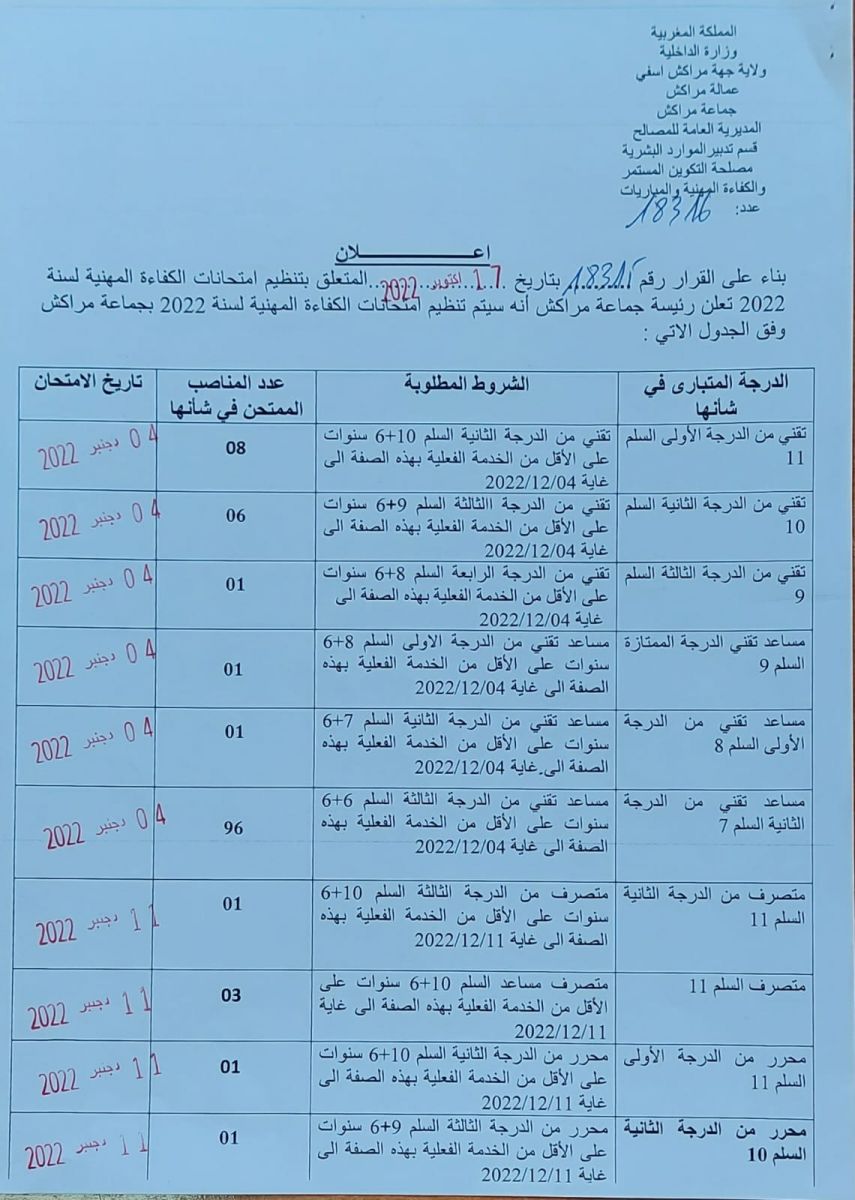 المملكة المغربية
وزارة الداخلية
ولاية جهة مراكش اسفي
عمالة مراكش
جماعة مراكش
المديرية العامة للمصالح
قسم تدبير الموارد البشرية
مصلحة التكوين المستمر
والكفاءة المهنية والمباريات
عدد: 18316
اعـــــــــــلان
بناء على القرار رقم 18315 بتاريخ 17 أكتوبر 2022 المتعلق بتنظيم امتحانات الكفاءة المهنية لسنة
2022 تعلن رئيسة جماعة مراكش أنه سيتم تنظيم امتحانات الكفاءة المهنية لسنة 2022 بجماعة مراكش
وفق الجدول الاتي :
الدرجة المتبارى في شأنها | الشروط المطلوبة | عدد المناصب الممتحن في شأنها | تاريخ الامتحان
تقني من الدرجة الأولى السلم 11 | تقني من الدرجة الثانية السلم 10+6 سنوات على الأقل من الخدمة الفعلية بهذه الصفة الى غاية 2022/12/04 | 08 | 04 دجنبر 2022
تقني من الدرجة الثانية السلم 10 | تقني من الدرجة االثالثة السلم 9+6 سنوات على الأقل من الخدمة الفعلية بهذه الصفة الى غاية 2022/12/04 | 06 | 04 دجنبر 2022
تقني من الدرجة الثالثة السلم 9 | تقني من الدرجة الرابعة السلم 8+6 سنوات على الأقل من الخدمة الفعلية بهذه الصفة الى غاية 2022/12/04 | 01 | 04 دجنبر 2022
مساعد تقني الدرجة الممتازة السلم 9 | مساعد تقني من الدرجة الاولى السلم 8+6 سنوات على الأقل من الخدمة الفعلية بهذه الصفة الى غاية 2022/12/04 | 01 | 04 دجنبر 2022
مساعد تقني من الدرجة الأولى السلم 8 | مساعد تقني من الدرجة الثانية السلم 7+6 سنوات على الأقل من الخدمة الفعلية بهذه الصفة الى غاية 2022/12/04 | 01 | 04 دجنبر 2022
مساعد تقني من الدرجة الثانية السلم 7 | مساعد تقني من الدرجة الثالثة السلم 6+6 سنوات على الأقل من الخدمة الفعلية بهذه الصفة الى غاية 2022/12/04 | 96 | 04 دجنبر 2022
متصرف من الدرجة الثانية السلم 11 | متصرف من الدرجة الثالثة السلم 10+6 سنوات على الأقل من الخدمة الفعلية بهذه الصفة الى غاية 2022/12/11 | 01 | 11 دجنبر 2022
متصرف السلم 11 | متصرف مساعد السلم 10+6 سنوات على الأقل من الخدمة الفعلية بهذه الصفة الى غاية 2022/12/11 | 03 | 11 دجنبر 2022
محرر من الدرجة الأولى السلم 11 | محرر من الدرجة الثانية السلم 10+6 سنوات على الأقل من الخدمة الفعلية بهذه الصفة الى غاية 2022/12/11 | 01 | 11 دجنبر 2022
محرر من الدرجة الثانية السلم 10 | محرر من الدرجة الثالثة السلم 9+6 سنوات على الأقل من الخدمة الفعلية بهذه الصفة الى غاية 2022/12/11 | 01 | 11 دجنبر 2022